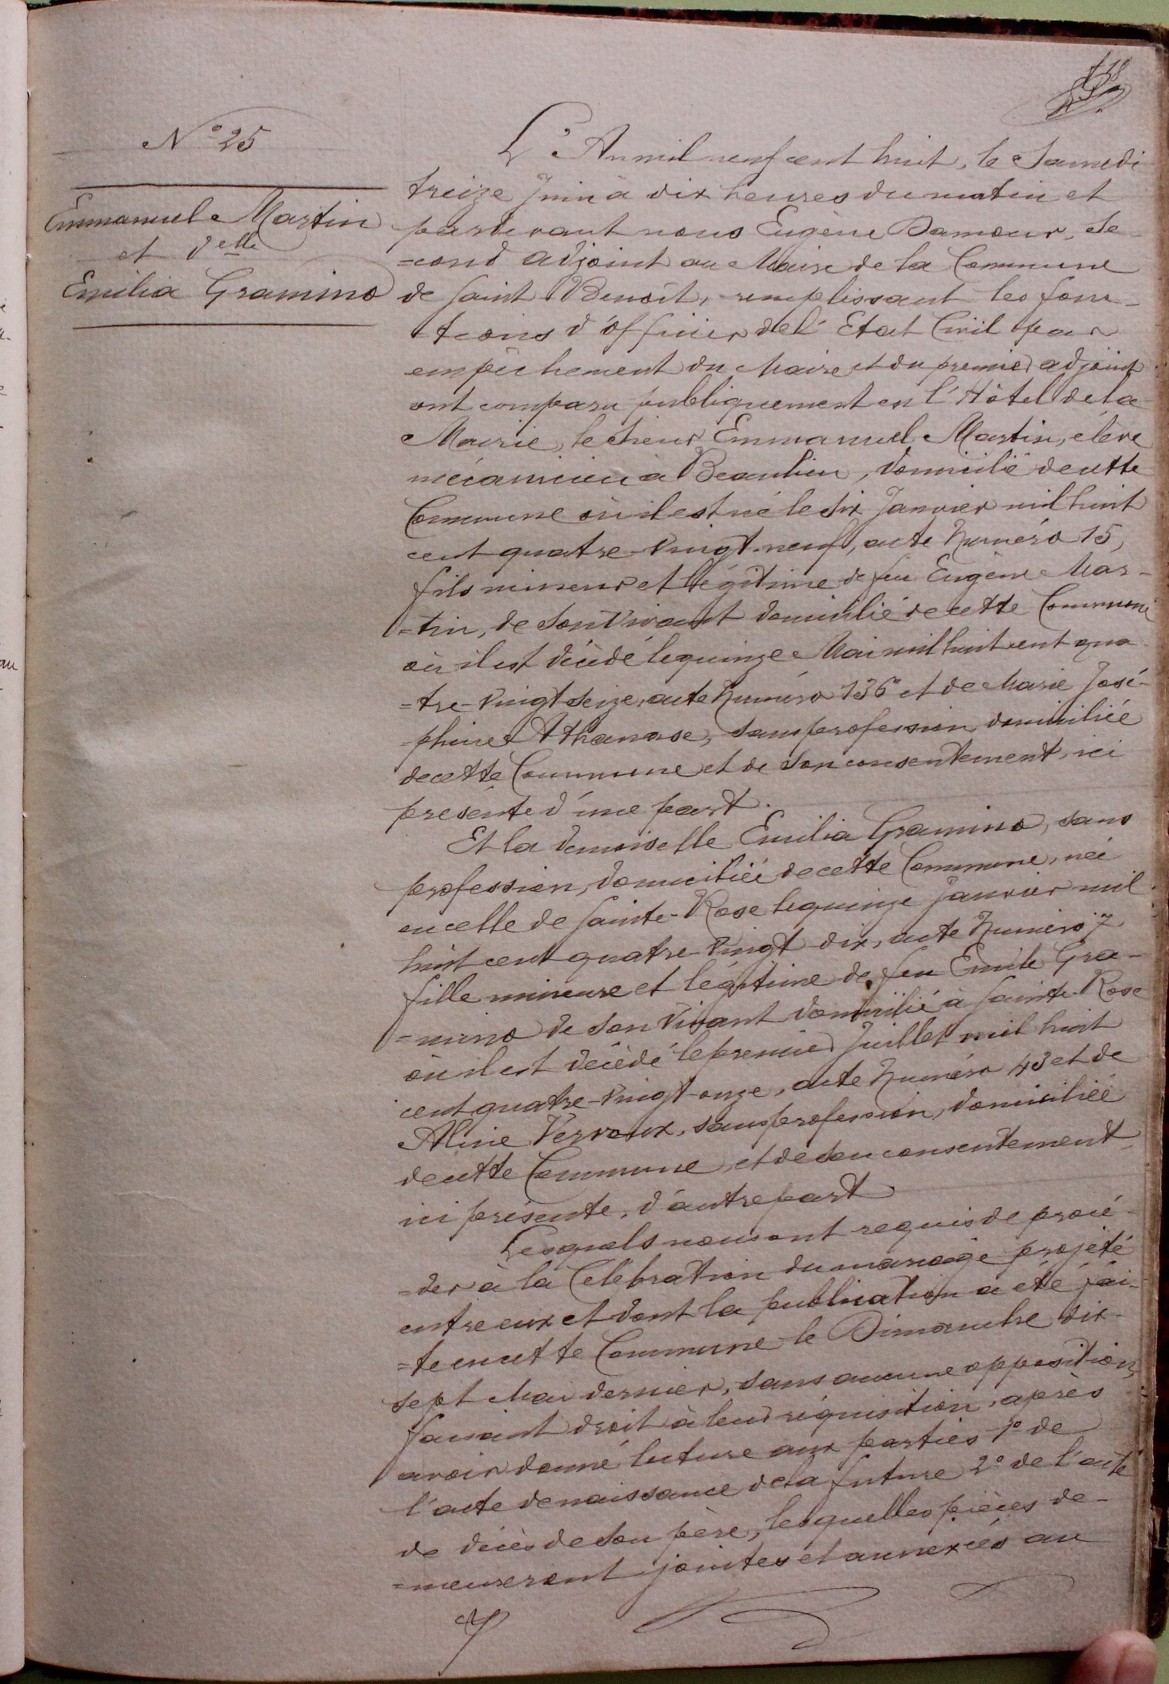 N° 25
Emmanuel Martin
et delle
Emilia Gramino
L'An mil neuf cent huit, le Samedi
treize Juin à dix heures du matin et
pardevant nous Eugène Damour, Se-
=cond adjoint au Maire de la Commune
de Saint Benoît, remplissant les fonc-
-tions d'officier de l'Etat Civil par
empêchement du Maire et du premier adjoint
ont comparu publiquement en l'Hôtel de la
Mairie, le sieur Emmanuel Martin, élève
mécanicien à Beaulieu, domicilié de cette
Commune où il est né le six Janvier mil huit
cent quatre-vingt-neuf, acte numéro 15,
fils mineur et légitime de feu Eugène Mar-
=tin, de son vivant domicilié de cette Commune
où il est décédé le quinze Mai mil huit cent qua-
=tre-vingt seize, acte numéro 136 et de Marie José-
-phine Athanase, sans profession, domiciliée
de cette Commune et de son consentement, ici
présente d'une part.
Et la demoiselle Emilia Gramino, sans
profession, domiciliée de cette Commune, née
en celle de Sainte-Rose le quinze Janvier mil
huit cent quatre-vingt-dix, acte numéro 7
fille mineure et légitime de feu Emile Gra-
-mino de son vivant domicilié à Sainte-Rose
où il est décédé le premier Juillet mil huit
cent quatre-vingt-onze, acte numéro 43 et de
Aline Vervoux, sans profession, domiciliée
de cette Commune, et de son consentement
ici présente, d'autre part
Lesquels nous ont requis de procé-
=der à la Célébration du mariage projeté
entre eux et dont la publication a été fai-
=te en cette Commune le Dimanche dix-
sept Mai dernier, sans aucune opposition,
faisant droit à leur réquisition, après
avoir donné lecture aux parties 1° de
l'acte de naissance de la future 2° de l'acte
de décès de son père, lesquelles pièces de-
=meureront jointes et annexées au